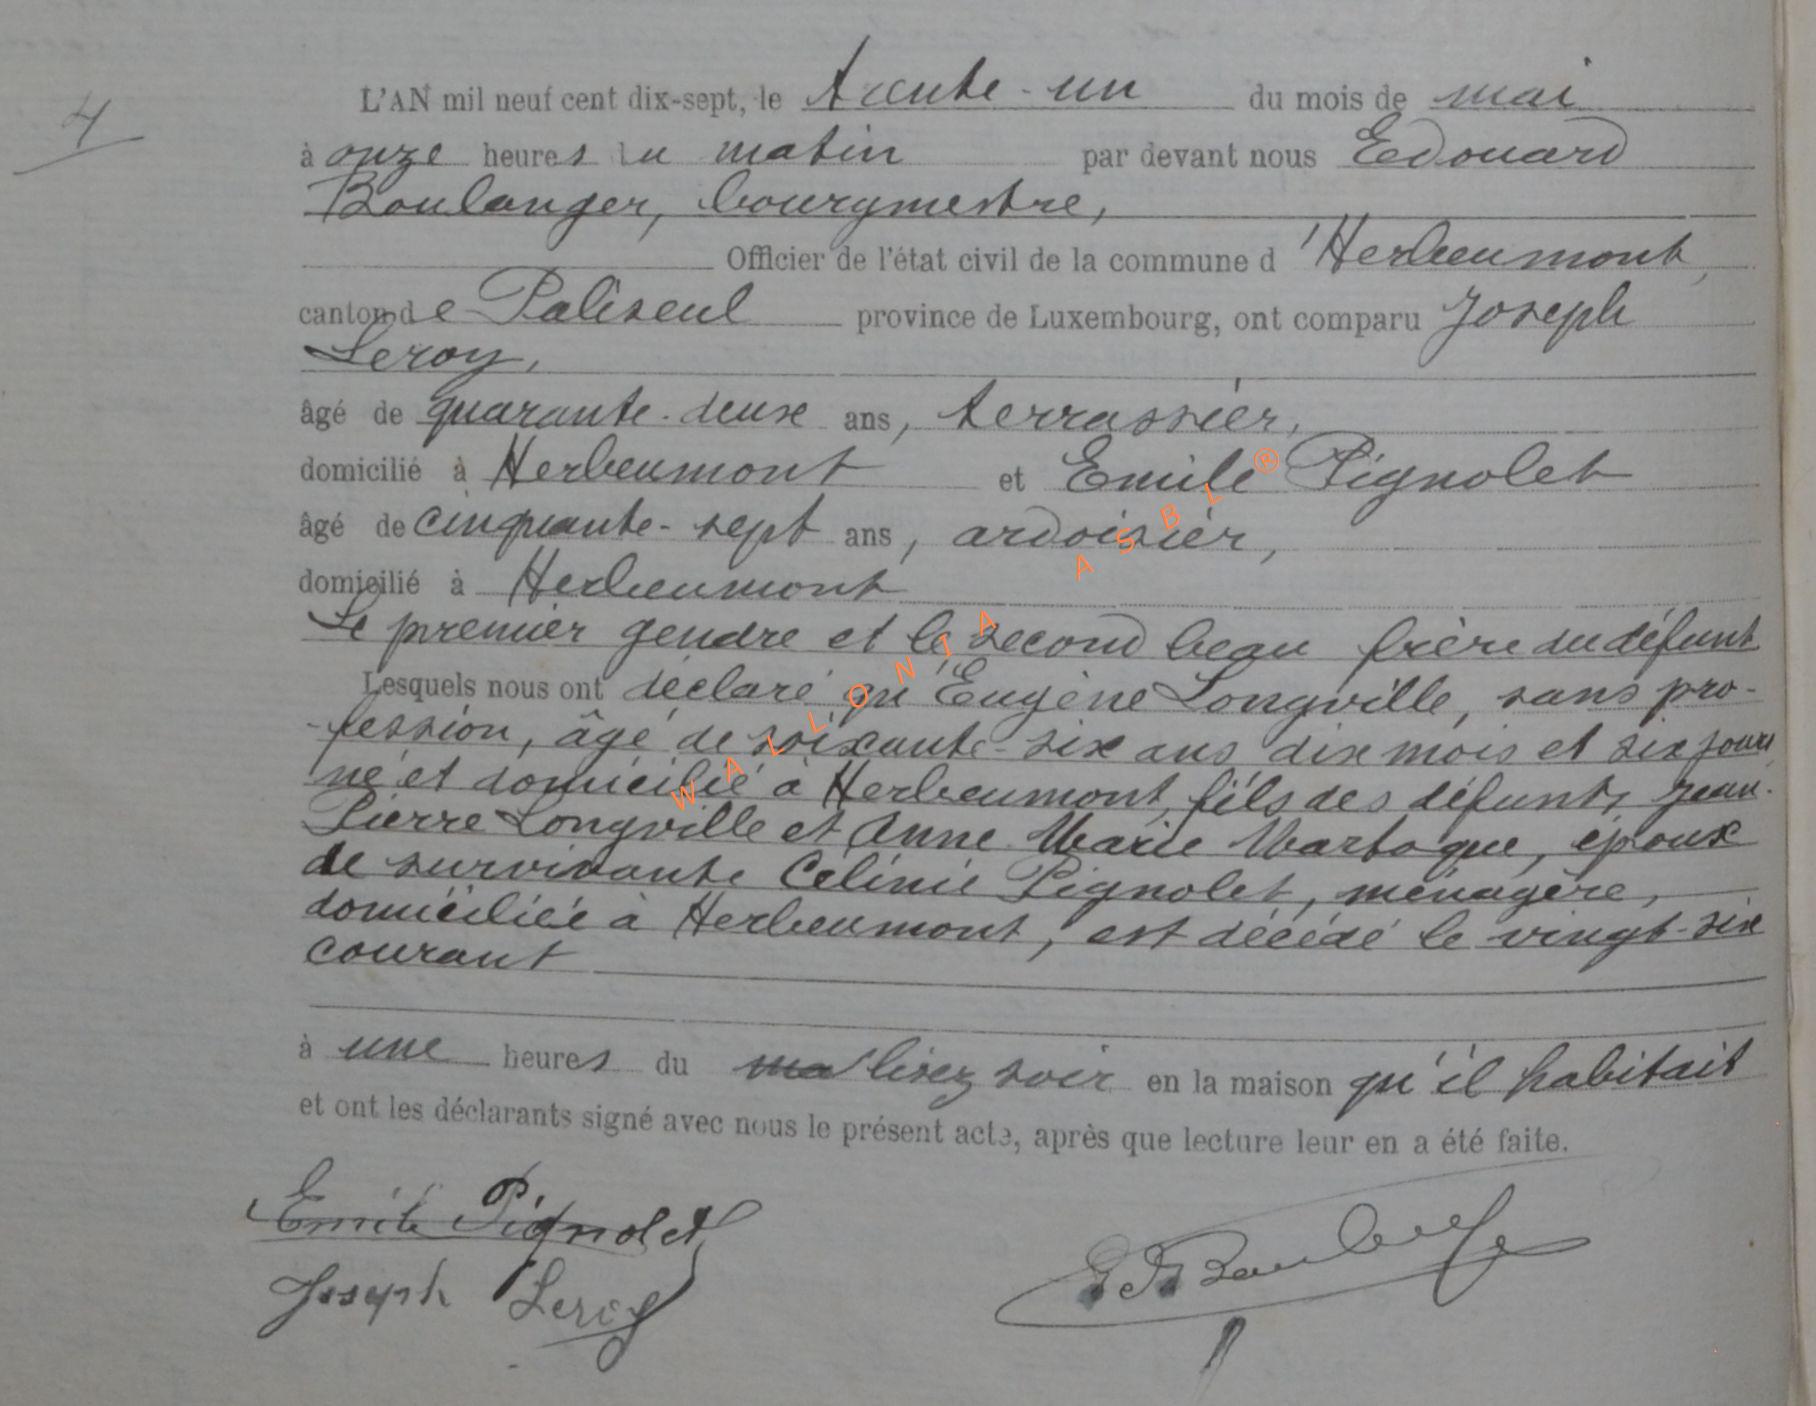 4
L'AN mil neuf cent dix-sept, le trente-un du mois de mai
à onze heures du matin par devant nous Edouard
Boulanger, bourgmestre,
Officier de l'état civil de la commune d'Herbeumont,
canton de Paliseul province de Luxembourg, ont comparu Joseph
Leroy,
âgé de quarante-deux ans, terrassier,
domicilié à Herbeumont et Emile Pignolet
âgé de cinquante-sept ans, ardoisier,
domicilié à Herbeumont
Le premier gendre et le second beau frère du défunt
Lesquels nous ont déclaré qu'Eugène Longville, sans pro-
-fession, âgé de soixante-six ans dix mois et six jours
né et domicilié à Herbeumont, fils des défunts Jean-
Pierre Longville et Anne Marie Martoque, époux
de survivante Célinie Pignolet, ménagère,
domiciliée à Herbeumont, est décédé le vingt-six
courant
à une heures du ma lisez soir en la maison qu'il habitait
et ont les déclarants signé avec nous le présent acte, après que lecture leur en a été faite.
Emile Pignolet
Joseph Leroy
WALLONIA ASBL ®